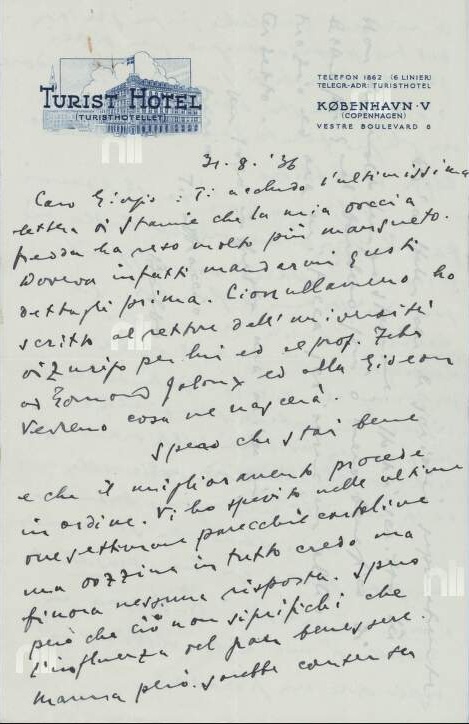 TURIST HOTEL
(TURISTHOTELLET)
TELEFON 1862 (6 LINIER)
TELEGR-ADR: TURISTHOTEL
KØBENHAVN·V
(COPENHAGEN)
VESTRE BOULEVARD 8
31.8.'36
Caro Giorgio: Ti accludo l'ultimissima
lettera di che la mia doccia
fredda ha reso molto più mansueto.
Doveva infatti mandarmi questi
dettagli prima. Cionullameno ho
scritto al rettore dell'università
di Zurigo per lui ed al prof.
ad Edmond Jaloux ed alla
Vedremo cosa ne nascerà.
Spero che stai bene
e che il miglioramento procede
in ordine. Vi ho spedito nelle ultime
due settimane parecchie cartoline
una dozzina in tutto credo ma
finora nessuna risposta. Spero
però che ciò non significhi che
l'influenza del benessere.
mamma però sarebbe contenta